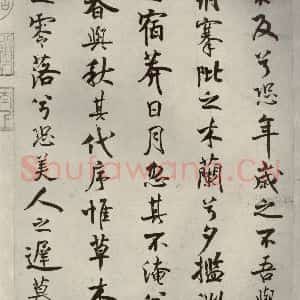 及兮恐年歲之不吾與
朝搴阰之木蘭兮夕攬
宿莽日月忽其不淹兮
春與秋其代序惟草木
零落兮恐美人之遲莫
Shufawang.CN